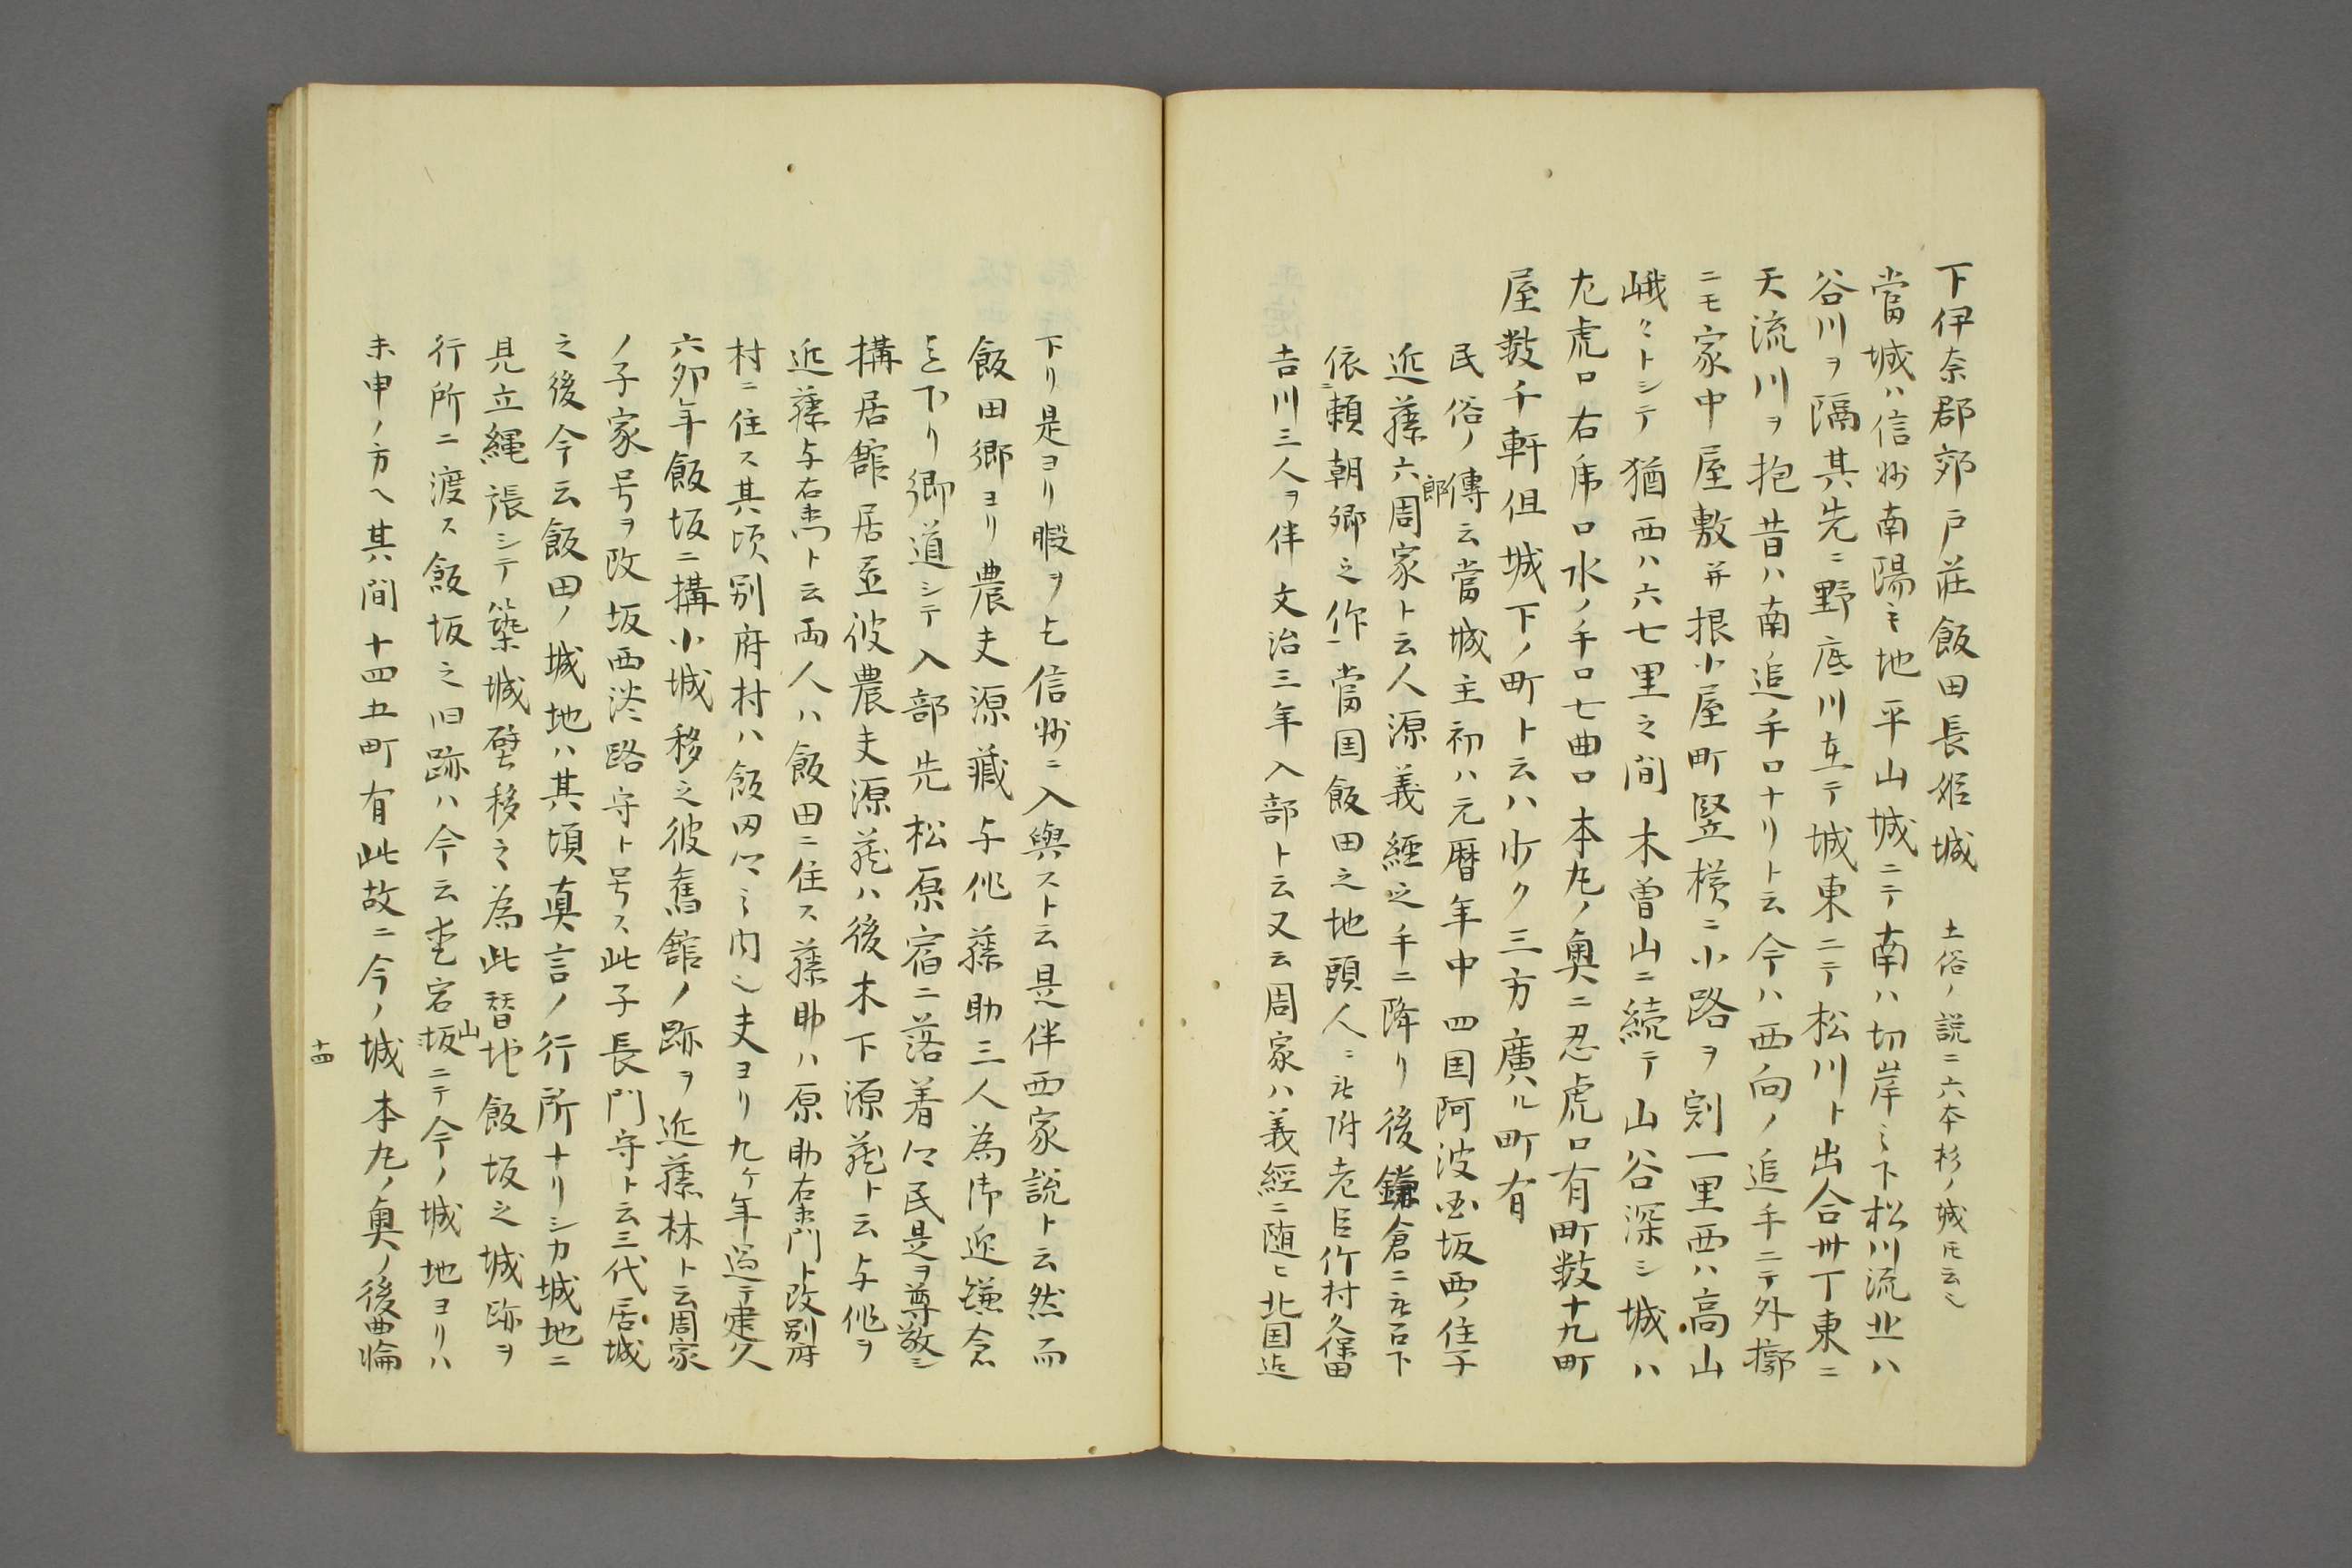 下伊奈郡郊戸荘飯田長姫城　土俗ノ説ニ六本杉ノ城トモ云也
當城ハ信州南陽之地平山城ニテ南ハ切岸之下松川流北ハ
谷川ヲ隔其先ニ野底川在テ城東ニテ松川ト出合卅丁東ニ
天流川ヲ抱昔ハ南追手口ナリト云今ハ西向ノ追手ニテ外擲
ニモ家中屋敷并根小屋町竪横ニ小路ヲ割一里西ハ高山
峨々トシテ猶西ハ六七里之間木曽山ニ続テ山谷深シ城ハ
左虎口右虎口水ノ手口七曲口本丸ノ奥ニ忍虎口有町数十九町
屋数千軒但城下ノ町ト云ハ少ク三方廣ハル町有
民俗ノ傳云當城主初ハ元暦年中四国阿波国坂西ノ住子
近藤六郎周家ト云人源義經之手ニ降リ後鎌倉ニ被召下
依ニ頼朝卿之作一當国飯田之地頭人ニ被附老臣竹村久保田
吉川三人ヲ伴文治三年入部ト云又云周家ハ義經ニ随ヒ北国迄
下リ是ヨリ暇ヲ乞信州ニ入與ストモ云是伴西家説ト云然而
飯田郷ヨリ農夫源蔵与惣藤助三人為御迎鎌倉
迄下リ郷道シテ入部先松原宿ニ落着仁民是ヲ尊敬シ
構居舘居並彼農夫源蔵ハ後木下源蔵ト云与惣ヲ
近藤与右衛ト云両人ハ飯田ニ住ス藤助ハ原助右衛門ト改別府
村ニ住ス其頃別府村ハ飯田仁之内也夫ヨリ九ケ年過テ建久
六卯年飯坂ニ構小城移之彼舊舘ノ跡ヲ近藤林ト云周家
ノ子家号ヲ改坂西淡路守ト号ス此子長門守ト云三代居城
之後今云飯田ノ城地ハ其頃真言ノ行所ナリシカ城地ニ
見立縄張シテ築城壁移之為此替地飯坂之城跡ヲ
行所ニ渡ス飯坂之旧跡ハ今云愛宕坂山ニテ今ノ城地ヨリハ
未申ノ方ヘ其間十四五町有此故ニ今ノ城本丸ノ奥ノ後曲輪
十四